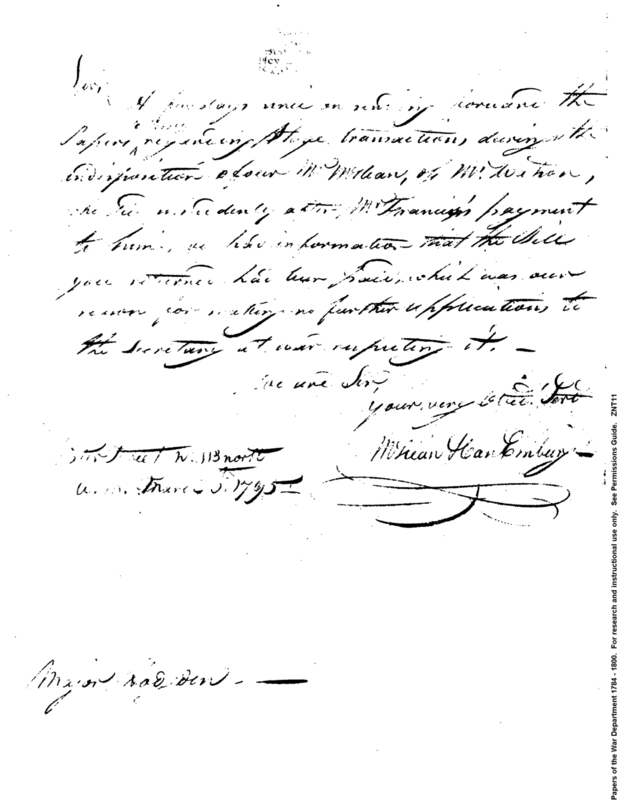 Sir,
A few days since on sending forward the
Papers, regarding those transactions during the
indisposition of our Mr. McLean, of Mr.
suddenly after Mr. Francis's payment
to him, we had information that the Bill
you returned had been paid, which was our
reason for making no further applications to
the Secretary at war respecting it. —
We are Sir,
your very Obed. Servt
McLean &
Street No. 113 north
March 5. 1795
Major —
Papers of the War Department 1784 - 1800. For research and instructional use only. See Permissions Guide. ZNT11